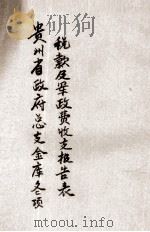 贵州省政府总支金库各项
税款及军政费收支报告表
mtoou.info